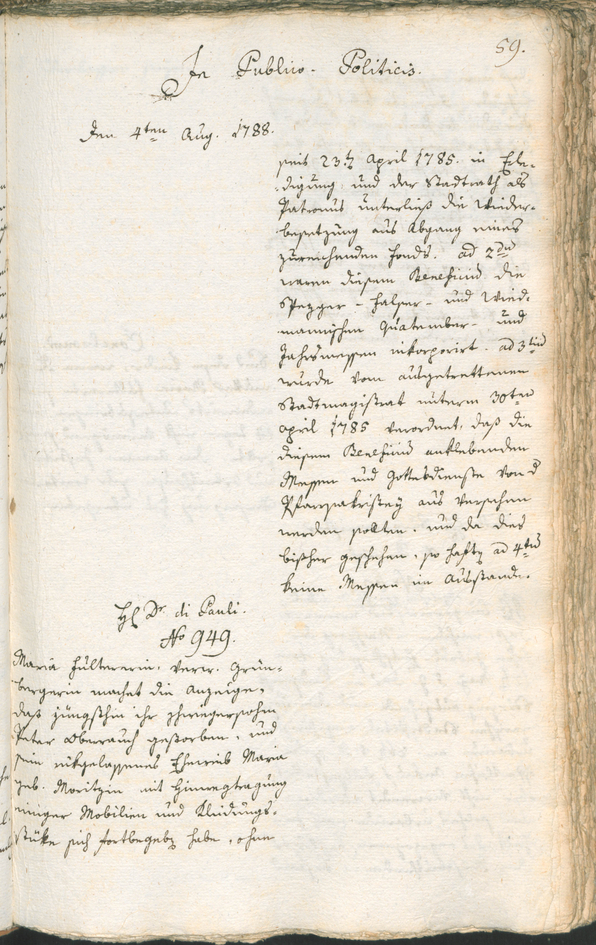 59.
In Publico-Politicis.
Den 4ten Aug. 1788.
seit 23.ten April 1785. in Erle-
digung: und der Stadtrath als
Patronus unterließ die Wieder-
besetzung aus Abgang eines
zureichenden Fonds. ad 2dum
waren diesem Benefizio die
und Wied-
mannischen Quatember- und
Jahrsmessen inkorporirt. ad 3tium
wurde vom ausgetrettenen
Stadtmagistrat unterm 30ten
April 1785 verordnet, daß die
diesem Benefizio anklebenden
Messen und Gottesdienste von d
Pfarrsakristey aus versehen
werden sollten. und da dies
bißher geschehen, so haften ad 4tum
keine Messen im Ausstande.
H. Dr. di Pauli.
No 949.
Maria verw. Grün-
bergerin machet die Anzeige,
daß jüngsthin ihr Schwegersohn
Peter Oberrauch gestorben, und
sein rükgelassenes Eheweib Maria
geb. Moritzin mit Hinwegtragung
einiger Mobilien und Kleidungs-
stüke sich fortbegeben habe, ohne